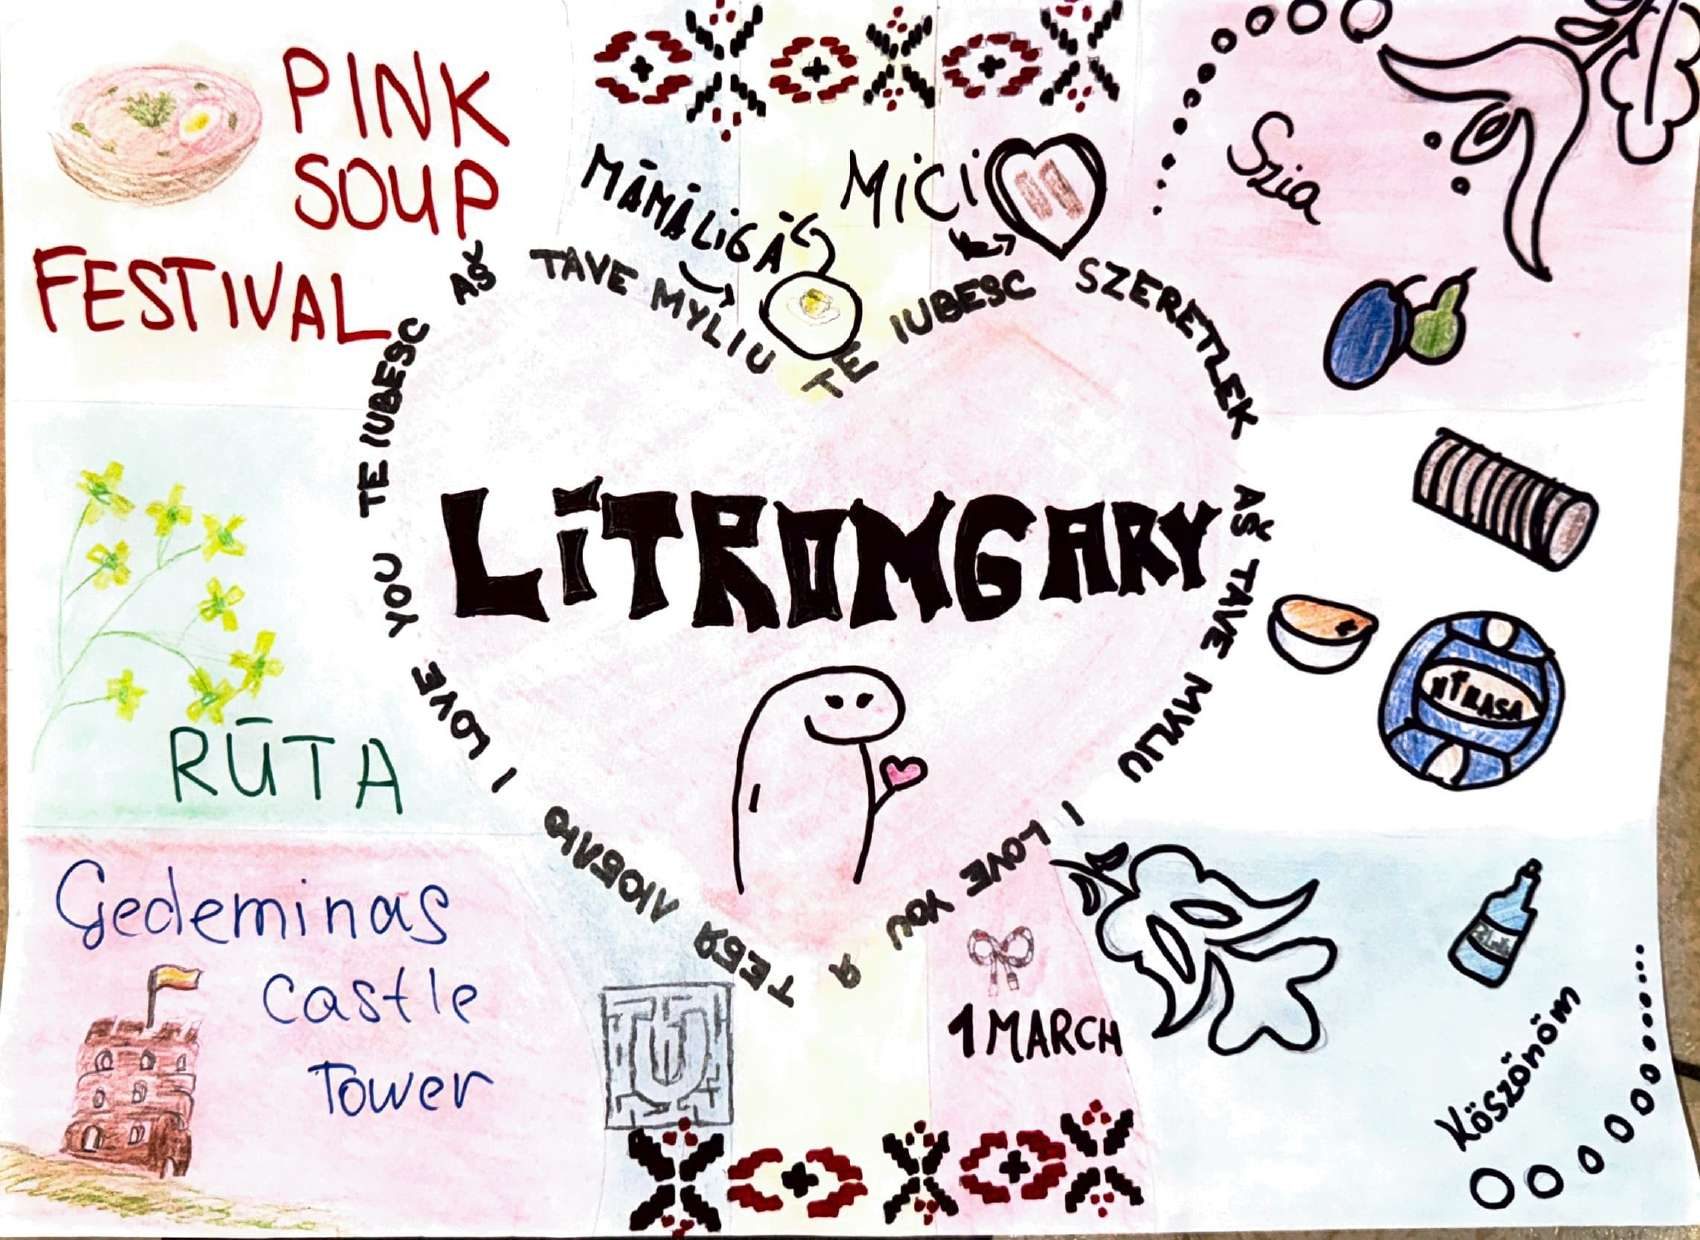 PINK
SOUP
FESTIVAL
MĂMĂLIGĂ
MICI
Szia
AŠ TAVE MYLIU
TE IUBESC
SZERETLEK
AŠ TAVE MYLIU
I LOVE YOU
Я ТЕБЯ ЛЮБЛЮ
I LOVE YOU
TE IUBESC
LITROMGARY
RŪTA
Gedeminas
Castle
Tower
TU
1 MARCH
Köszönöm